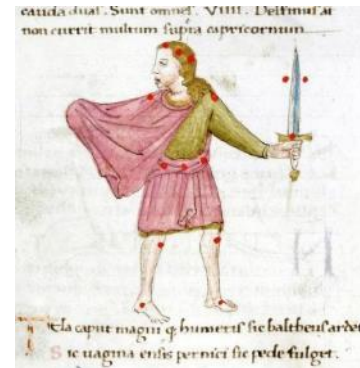 cauda duas. Sunt omnes. VIIII. Delfinus at
non currit multum supra capricornum
lla caput magni q; humeris sic baltheus ardet
Sic uagina ensis pernici sic pede fulget.